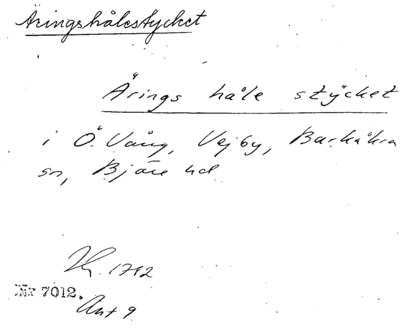 Äringshålestycket
Ärings håle stÿcket
i Ö. Vång, Vejby, Barkåkra
sn, Bjäre hd
1792
Nr 7012.
Ant 9